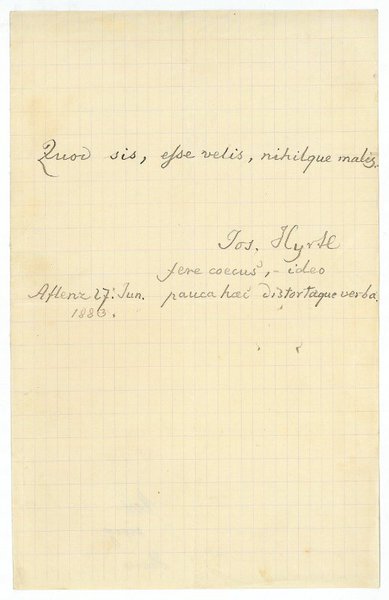 Quod sis, esse velis, nihilque malis.
Jos. Hyrtl
fere coecus, – ideo
Aflenz 27. Jun. pauca haec distortaque verba
1883.